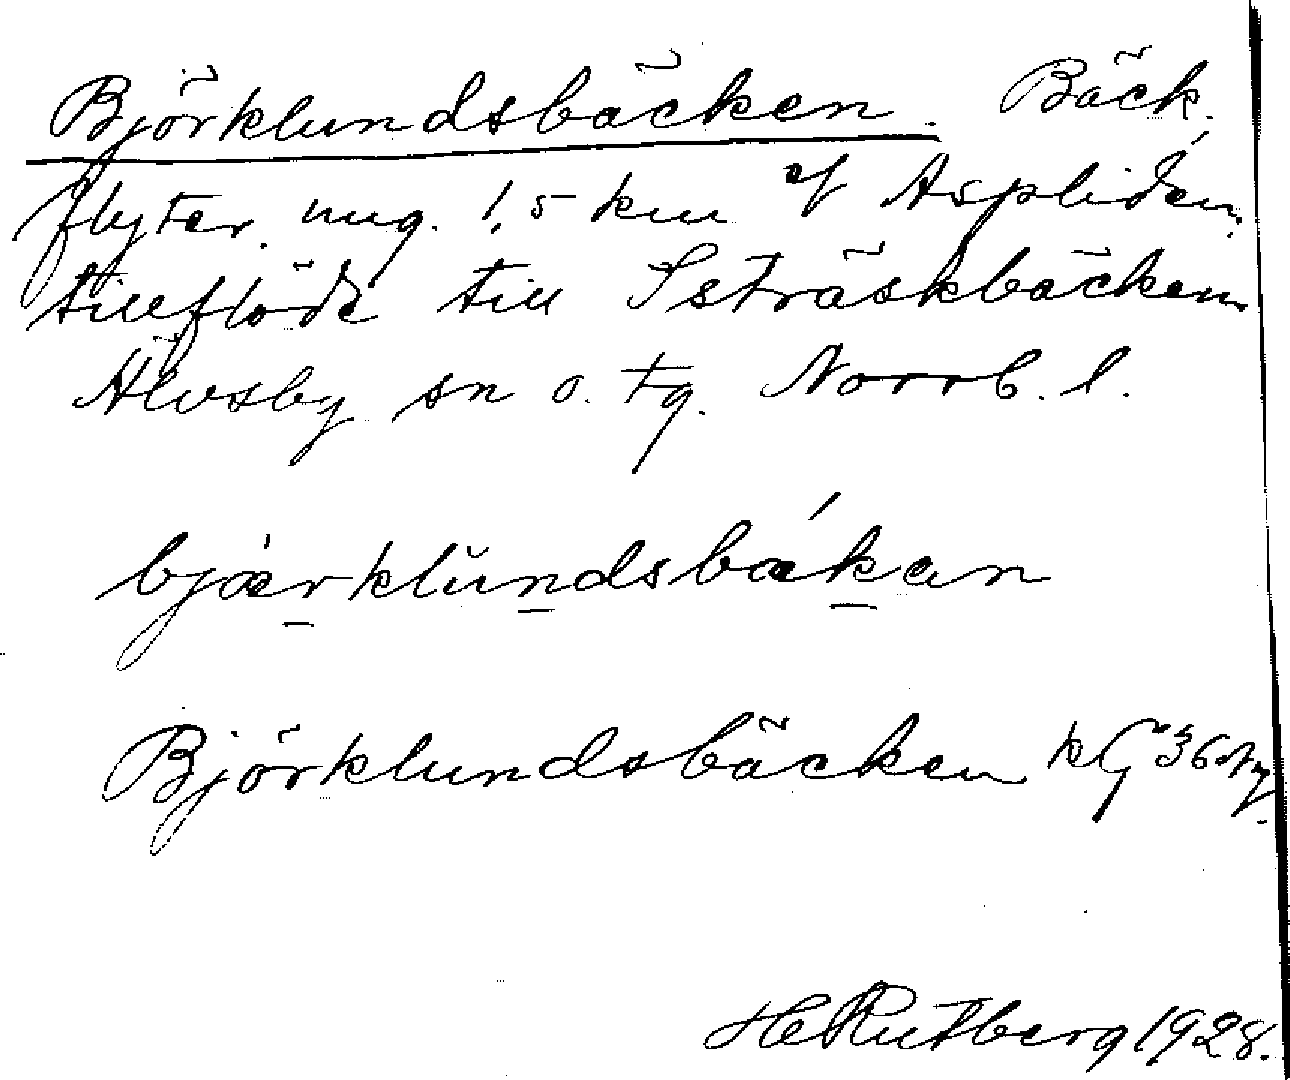 Björklundsbäcken. Bäck.
flyter ung. 1,5 km of Aspliden,
tillflöde till Isträskbäcken.
Älvsby sn o. tg. Norrb. l.
bjærklŭndsbækan
Björklundsbäcken kG 36
H Rutberg 1928.